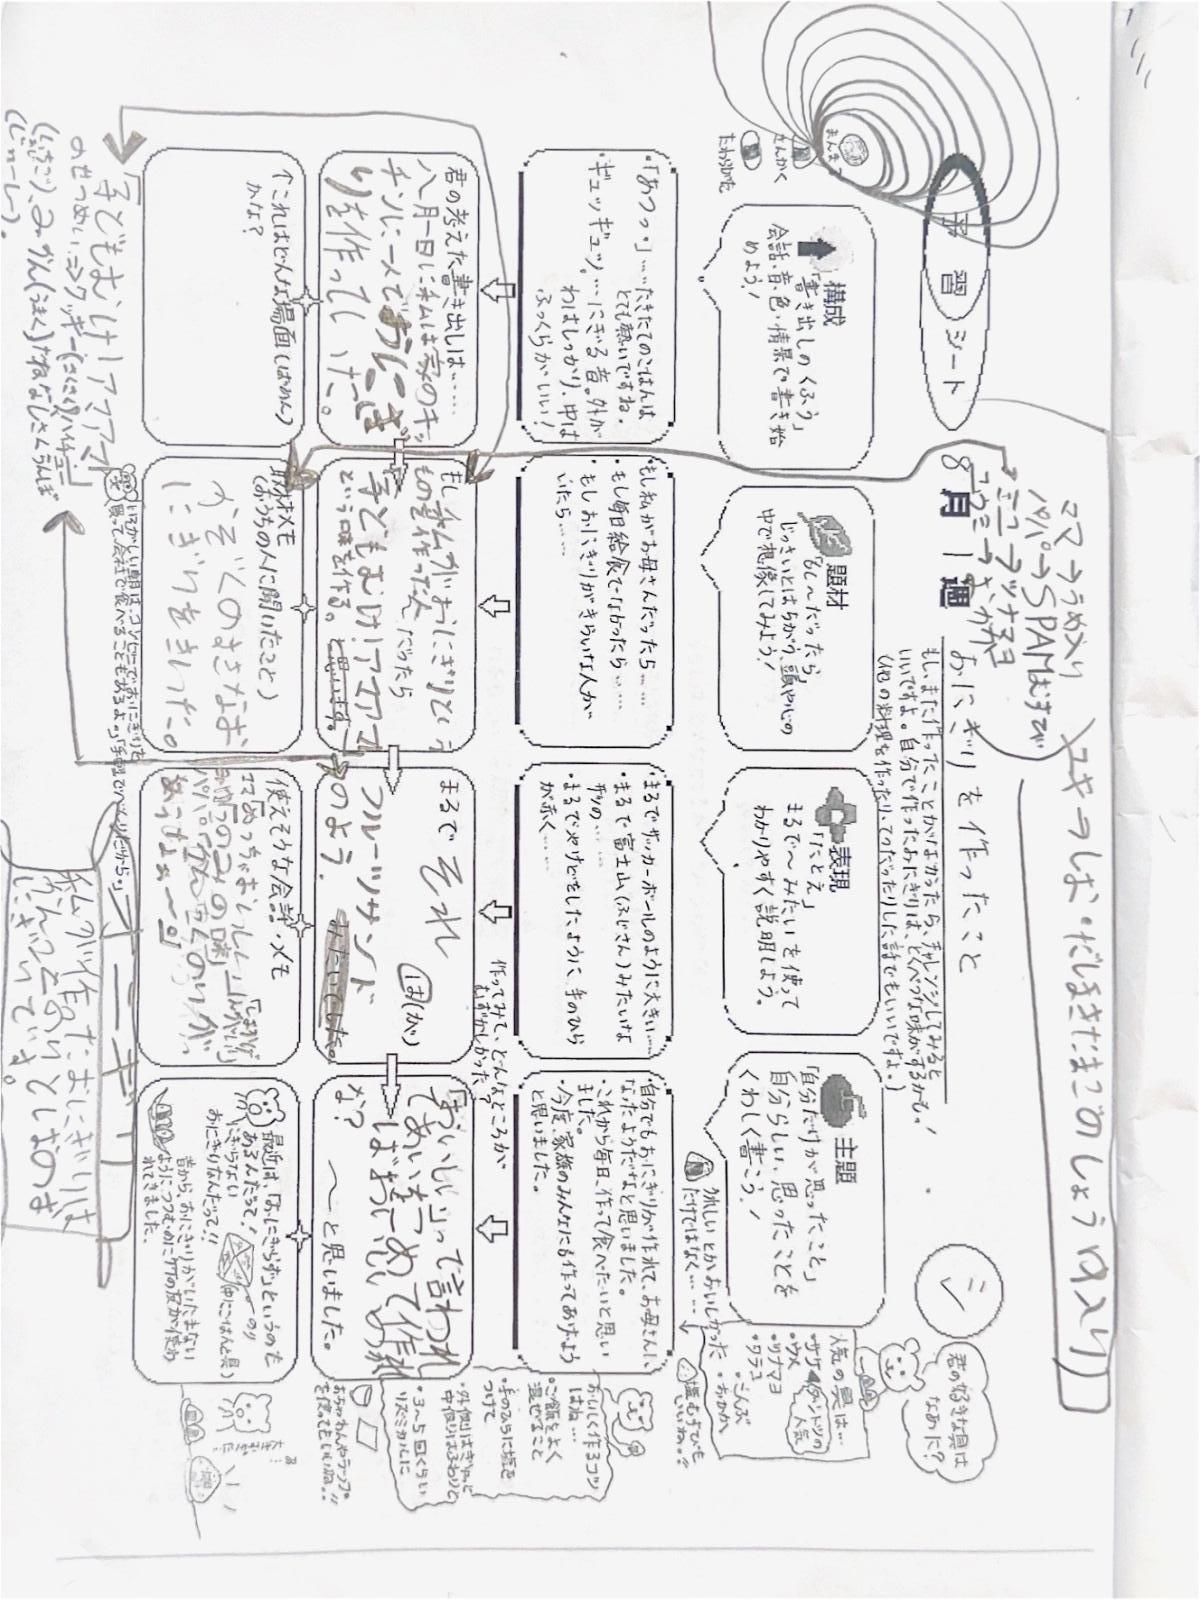 予習シート
8月1週
おにぎりを作ったこと
シ
もし、まだ作ったことがなかったら、チャレンジしてみると
いいですよ。自分で作ったおにぎりは、とくべつな味がするかも！
(他の料理を作ったり、てつだったりした話でもいいですよ。)
ママ→うめ入り
パパ→SPAMむすび
ミユ→ツナマヨ
ユキ→しお・だしまきたまごのしょうゆ入り
まんまる
さんかく
たわらがた
構成
「書き出しのくふう」
会話、音、色、情景で書き始
めよう！
題材
「もし〜だったら」
じっさいとはちがう、頭や心の
中で想像してみよう！
表現
「たとえ」
まるで〜みたいを使って
わかりやすく説明しよう。
主題
「自分だけが思ったこと」
自分らしい、思ったことを
くわしく書こう！
君の好きな具は
なあに？
人気の具は…
・サケ
ダントツの人気
・ウメ
・ツナマヨ
・タラコ
・こんぶ
・おかか
うれしいとかおいしかった
だけではなく……
塩むすびも
いいね。!!
・「あつっ。」……たきたてのごはんは
とても熱いですね。
・ギュッギュッ。…にぎる音。外が
わはしっかり、中は
ふっくらがいい！
・もし私がお母さんだったら……
・もし毎日給食でなかったら……
・もしおにぎりがきらいな人が
いたら……
・まるでサッカーボールのように大きい……
・まるで富士山(ふじさん)みたいな
形の……
・まるでやけどをしたように、手のひら
が赤く……
・自分でもおにぎりが作れて、お母さんに
なったようだなと思いました。
・これから毎日、作って食べたいと思い
ました。
・今度、家族のみんなにも作ってあげよう
と思いました。
おいしく作るコツ
はね…
・ご飯をよく
混ぜること
・手のひらに塩を
つけて
・外側はぎゅっと
中側はふわりと
・3〜5回くらい
リズミカルに
おちゃわんやラップ。
を使ってもいいね。!!
作ってみて、どんなところが
むずかしかった？
君の考えた書き出しは……
八月一日に私は家のキッ
チンに一人でおにぎ
りを作っていた。
もし私がおにぎりという
ものを作った人だったら
子どもむけ！アマアマ
という味を作る。と思います。
まるで それ
は(が)
フルーツサンド
のよう。みたいでした。
「おいしい」って言われ
てあいをこめて作れ
ばおいしいのか
な？
〜と思いました。
↑これはどんな場面(ばめん)
かな？
取材メモ
(おうちの人に聞いたこと)
かぞくのすきなお
にぎりをきいた。
使えそうな会話・メモ
ママ「めっちゃおいし〜」
最近は、「おにぎらず」というのも
あるんだって！
にぎらない
おにぎりなんだって!!
のり
(中にごはんと具)
昔から、おにぎりがいたまない
ようにつつむのに竹の皮が使わ
れてきました。
いそがしい朝は、コンビニでおにぎりを
買って会社で食べることもあるよ。「手軽でべんりだから。」
「子どもむけ！アマアマ」
のせつめい⇒クッキー(さくさく)
(いちご)、みかん
オニギリ
私が作ったおにぎりは
にぎっています。